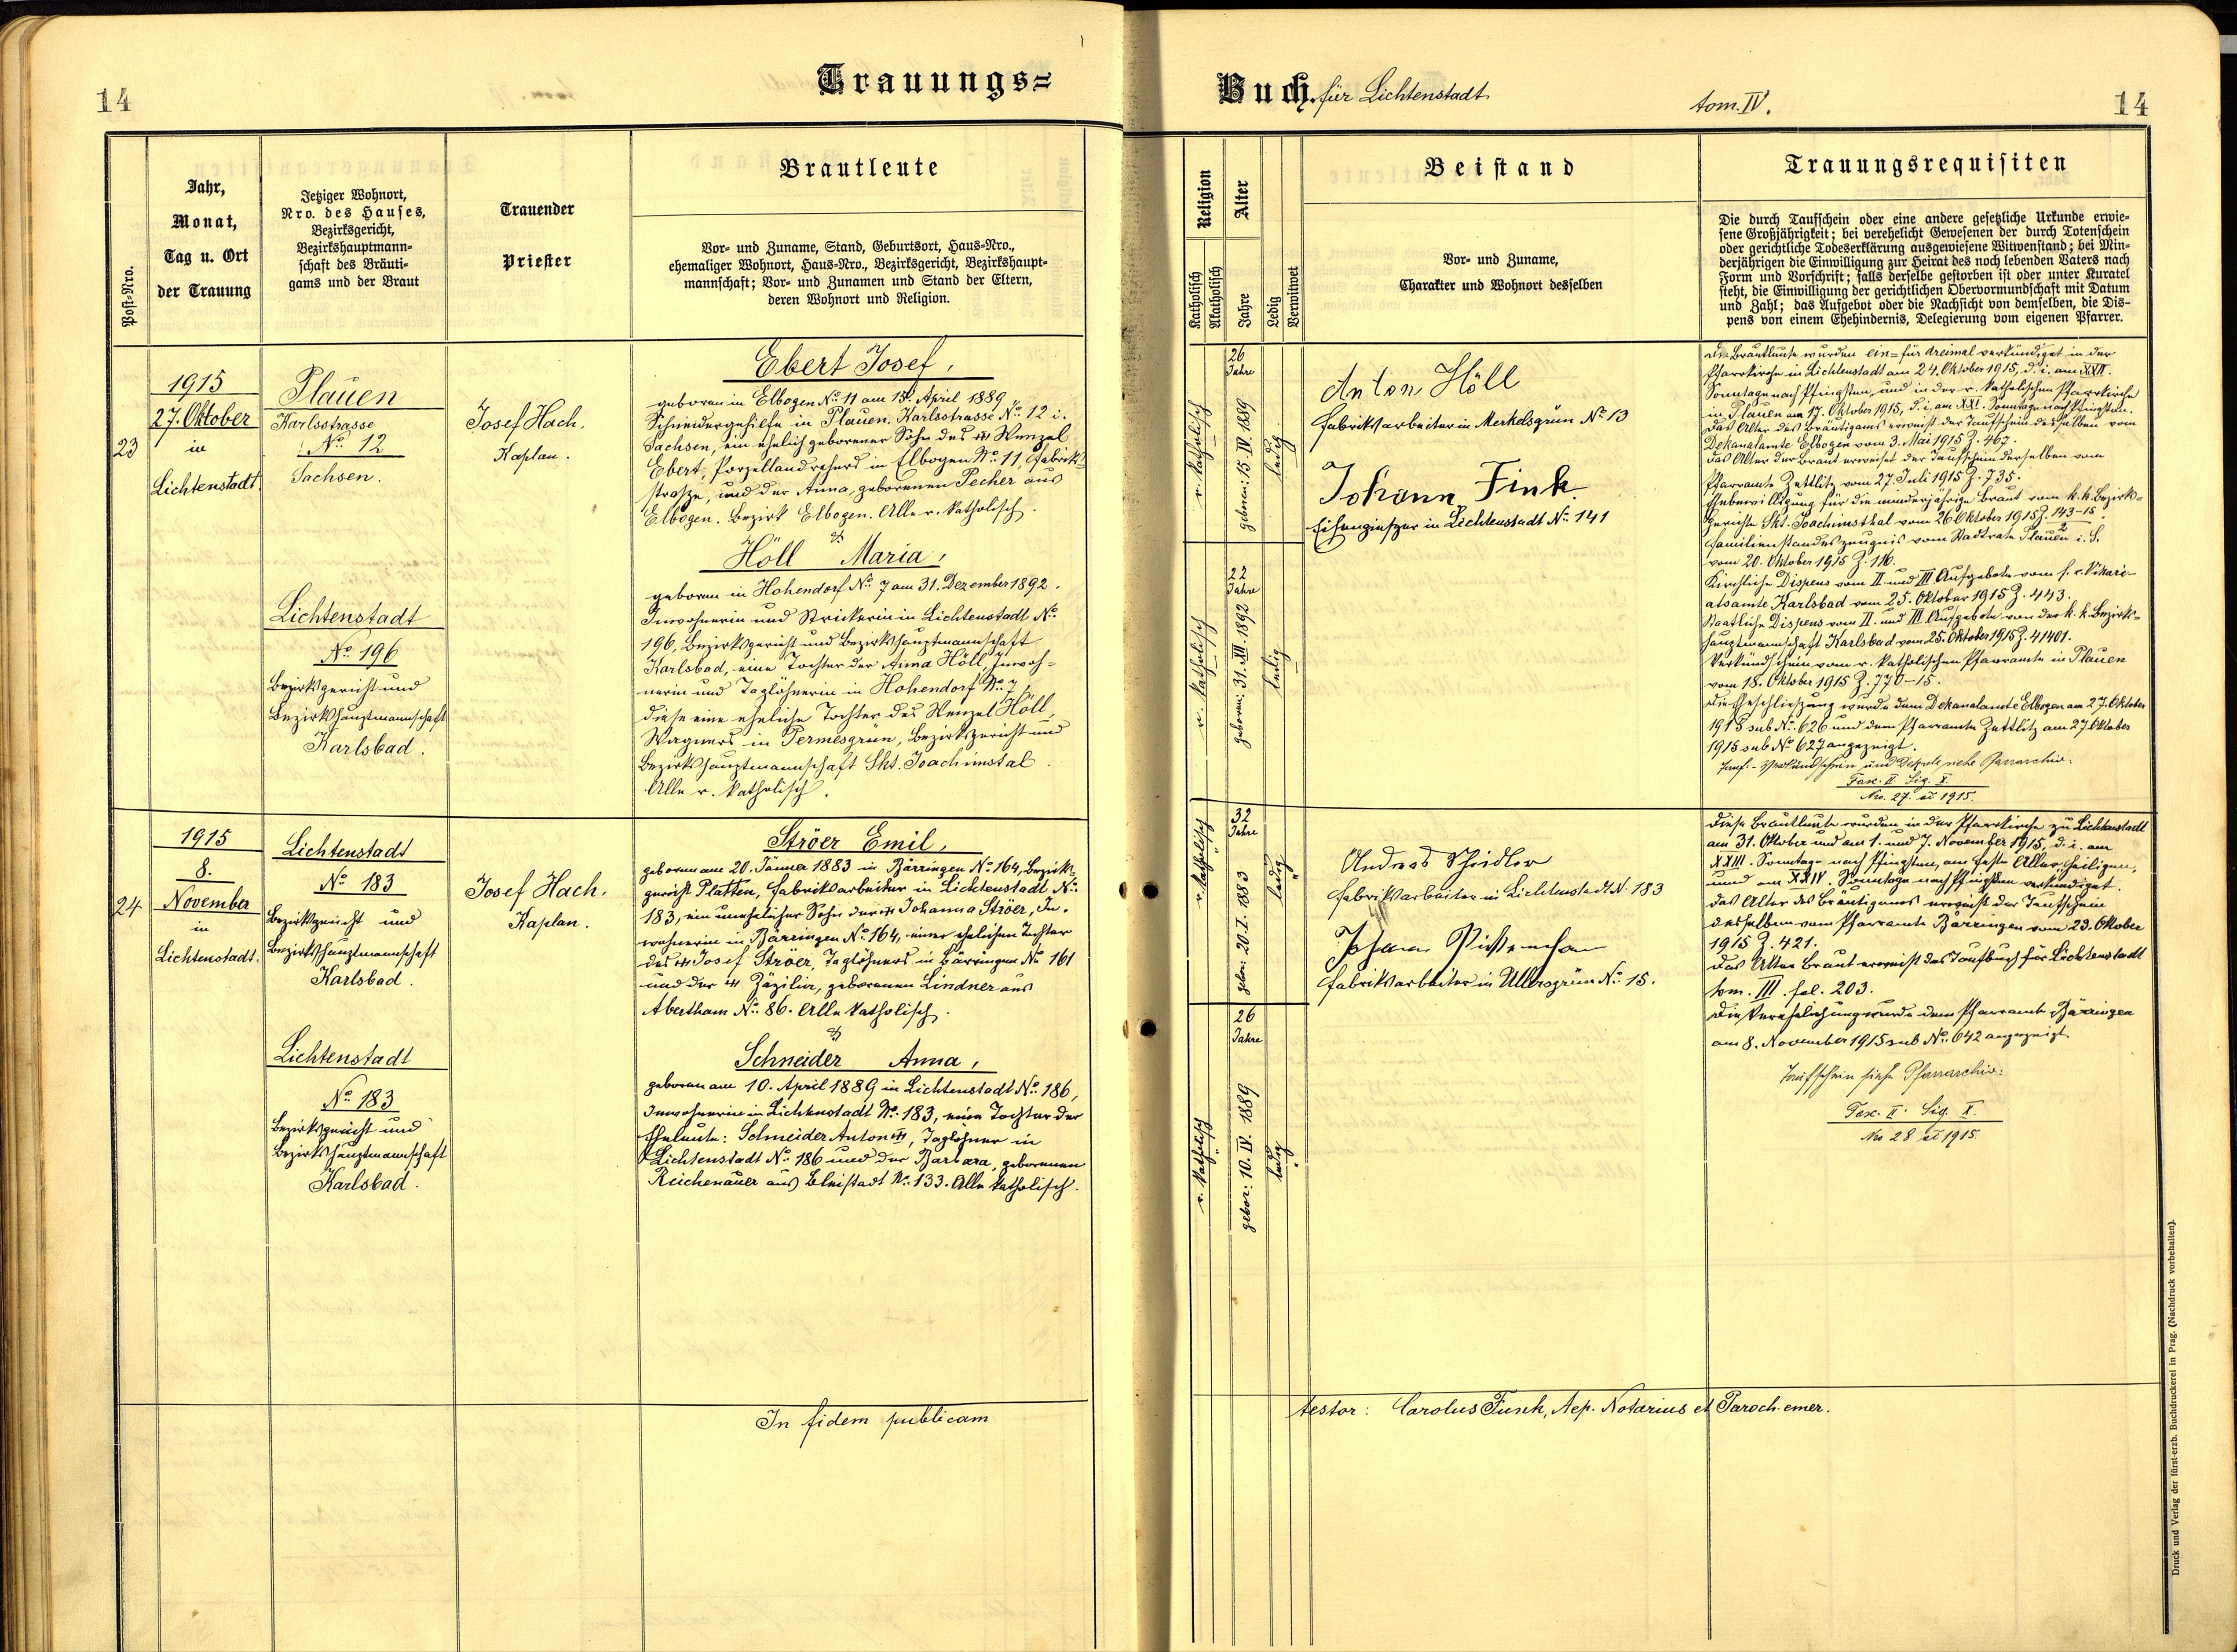 14
Trauungs=
Buch für Lichtenstadt
tom. IV.
14
Post-Nro.
Jahr,
Monat,
Tag u. Ort
der Trauung
Jetziger Wohnort,
Nro. des Hauses,
Bezirksgericht,
Bezirkshauptmann-
schaft des Bräuti-
gams und der Braut
Trauender
Priester
Brautleute
Vor- und Zuname, Stand, Geburtsort, Haus-Nro.,
ehemaliger Wohnort, Haus-Nro., Bezirksgericht, Bezirkshaupt-
mannschaft; Vor- und Zunamen und Stand der Eltern,
deren Wohnort und Religion.
Religion
Katholisch
Akatholisch
Alter
Jahre
Ledig
Verwitwet
Beistand
Vor- und Zuname,
Charakter und Wohnort desselben
Trauungsrequisiten
Die durch Taufschein oder eine andere gesetzliche Urkunde erwie-
sene Großjährigkeit; bei verehelicht Gewesenen der durch Totenschein
oder gerichtliche Todeserklärung ausgewiesene Witwenstand; bei Min-
derjährigen die Einwilligung zur Heirat des noch lebenden Vaters nach
Form und Vorschrift; falls derselbe gestorben ist oder unter Kuratel
steht, die Einwilligung der gerichtlichen Obervormundschaft mit Datum
und Zahl; das Aufgebot oder die Nachsicht von demselben, die Dis-
pens von einem Ehehindernis, Delegierung vom eigenen Pfarrer.
23
1915
27. Oktober
in
Lichtenstadt.
Plauen
Karlsstrasse
No. 12
Sachsen.
Lichtenstadt
No. 196
Bezirksgericht und
Bezirkshauptmannschaft
Karlsbad.
Josef Hach.
Kaplan.
Ebert Josef,
geboren in Elbogen No. 11 am 15. April 1889,
Schneidergehilfe in Plauen, Karlsstrasse No. 12 i.
Sachsen, ein ehelich geborener Sohn des Wenzel
Ebert, Porzellandrehers in Elbogen No. 11, Fabrik-
strasze, und der Anna, geborenen Pecher aus
Elbogen. Bezirk Elbogen. Alle r. katholisch.
&
Höll Maria,
geboren in Hohendorf No. 7 am 31. Dezember 1892.
Inwohnerin und Strickerin in Lichtenstadt No.
196, Bezirksgericht und Bezirkshauptmannschaft
Karlsbad, eine Tochter der Anna Höll, Inwoh-
nerin und Taglöhnerin in Hohendorf No. 7,
diese eine eheliche Tochter des Wenzel Höll,
Wagners in Permesgrün, Bezirksgericht und
Bezirkshauptmannschaft Skt. Joachimstal.
Alle r. katholisch.
r. katholisch
26
Jahre
geboren: 15. IV. 1889
ledig
r. katholisch
22
Jahre
geboren: 31. XII. 1892
ledig
Anton Höll
Fabriksarbeiter in Merkelsgrün No 13
Johann Fink.
Eisengieszer in Lichtenstadt No. 141
Die Brautleute wurden ein= für dreimal verkündiget in der
Pfarrkirche in Lichtenstadt am 24. Oktober 1915, d. i. am XXII.
Sonntage nach Pfingsten, und in der r. katholischen Pfarrkirche
in Plauen am 17. Oktober 1915, d. i. am XXI. Sonntage nach Pfingsten.
Das Alter des Bräutigams erweist der Taufschein desselben vom
Dekanalamte Elbogen vom 3. Mai 1915 Z. 467.
Das Alter der Braut erweiset der Taufschein derselben vom
Pfarramte Zettlitz vom 27. Juli 1915 Z. 735.
Ehebewilligung für die minderjährige Braut vom k. k. Bezirks-
gerichte Skt. Joachimsthal vom 26 Oktober 1915 Z. 143-15/2
Familienstandeszeugnis vom Stadtrate Plauen i. S.
vom 20. Oktober 1915 Z. 116.
Kirchliche Dispens vom II. und III. Aufgebote vom f. e. Vikari-
atsamte Karlsbad vom 25. Oktober 1915 Z. 443.
Staatliche Dispens vom II. und III. Aufgebote von der k. k. Bezirks-
hauptmannschaft Karlsbad vom 25. Oktober 1915 Z. 41401.
Verkündschein vom r. katholischen Pfarramte in Plauen
vom 18. Oktober 1915 Z. 770-15.
Die Eheschlieszung wurde dem Dekanalamte Elbogen am 27. Oktober
1915 sub No. 626 und dem Pfarramte Zettlitz am 27 Oktober
1915 sub No. 627 angezeigt.
Tauf- Verkündschein und siehe Pfarrarchiv:
Fasc. II. Sig. X.
Nro. 27. ex 1915.
24
1915
8.
November
in
Lichtenstadt.
Lichtenstadt
No. 183
Bezirksgericht und
Bezirkshauptmannschaft
Karlsbad.
Lichtenstadt
No. 183
Bezirksgericht und
Bezirkshauptmannschaft
Karlsbad.
Josef Hach.
Kaplan.
Ströer Emil,
geboren am 20. Jänner 1883 in Bärringen No. 164, Bezirks-
gericht Platten, Fabriksarbeiter in Lichtenstadt No.
183, ein unehelicher Sohn der Johanna Ströer, In-
wohnerin in Bärringen No. 164, einer ehelichen Tochter
des Josef Ströer, Taglöhners in Bärringen No. 161
und der Zäzilia, geborenen Lindner aus
Abertham No. 86. Alle katholisch.
&
Schneider Anna,
geboren am 10. April 1889 in Lichtenstadt No. 186,
Inwohnerin in Lichtenstadt No. 183, eine Tochter der
Eheleute: Schneider Anton, Taglöhner in
Lichtenstadt No. 186 und der Barbara, geborenen
Reichenauer aus Bleistadt No. 133. Alle katholisch.
r. katholisch
32
Jahre
gebor: 20. I. 1883
ledig
r. katholisch
26
Jahre
gebor: 10. IV. 1889
ledig
Andreas Schindler
Fabriksarbeiter in Lichtenstadt No. 183
Johann
Fabriksarbeiter in Ullersgrün No. 15.
Diese Brautleute wurden in der Pfarrkirche zu Lichtenstadt
am 31. Oktober und am 1. und 7. November 1915, d. i. am
XXIII. Sonntage nach Pfingsten, am Feste Allerheiligen,
und am XXIV. Sonntage nach Pfingsten verkündiget.
Das Alter des Bräutigams erweist der Taufschein
desselben vom Pfarramte Bärringen vom 23. Oktober
1915 Z. 421.
Das Alter Braut erweist das Taufbuch für Lichtenstadt
tom. III. fol. 203.
Die Verehelichung wurde dem Pfarramte Bärringen
am 8. November 1915 sub No. 642 angezeigt.
Taufschein siehe Pfarrarchiv:
Fasc. II. Sig. X.
Nro 28 ex 1915.
In fidem publicam
testor: Carolus Funk, Aep. Notarius et Paroch. emer.
Druck und Verlag der fürst-erzb. Buchdruckerei in Prag. (Nachdruck vorbehalten).